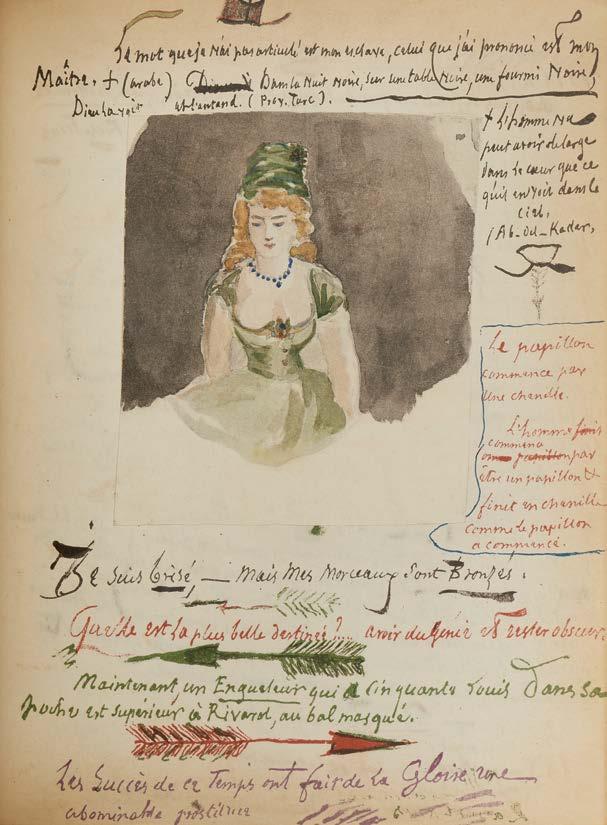 Le mot que je N'ai pas articulé est mon esclave, celui que j'ai prononcé est mon
Maître. + (arabe) Dans la Nuit Noire, sur une table Noire, une fourmi Noire,
Dieu la voit et l'entend. (Prov. Turc).
+ L'homme Ne
peut avoir de large
dans le cœur que ce
qu'il en voit dans le
ciel,
(Ab-del-Kader,
Le papillon
commence par
une chenille.
L'homme finit
commence
papillon par
être un papillon &
finit en chenille
comme le papillon
a commencé.
Je suis brisé, — Mais Mes Morceaux Sont Bronzés.
Quelle est la plus belle destinée?.... avoir du génie et rester obscur.
Maintenant, un Engueuleur qui a cinquante louis Dans sa
poche est supérieur à Rivarol, au bal masqué.
Les Succès de ce Temps ont fait de la Gloire une
abominable prostituée